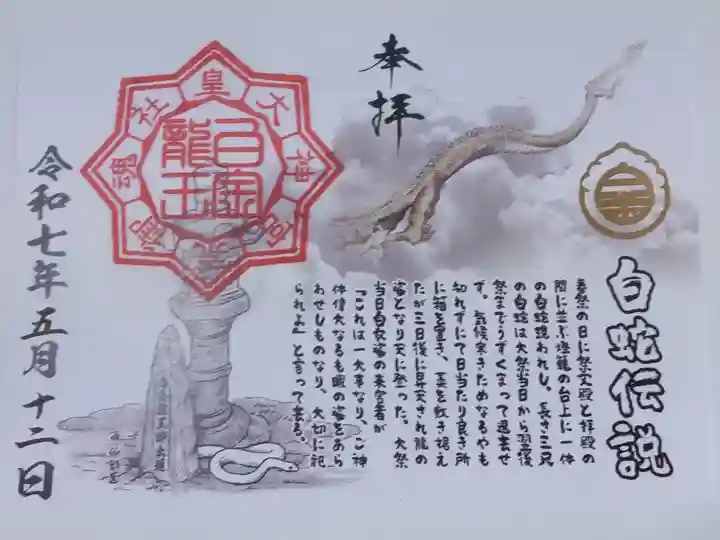 奉拝
白蛇伝説
春祭の日に祭文殿と拝殿の
間に並ぶ燈籠の台上に一体
の白蛇現われし。長さ三尺
の白蛇は大祭当日から翌後
祭までうずくまって退去せ
ず。気候寒きためなるやも
知れずにて日当たり良き所
に箱を置き、玉を敷き据え
たが三日後に昇天され龍の
姿となり天に登った。大祭
当日白衣姿の来宮者が
「これは一大事なり、ご神
体偉大なるも暇の姿をあら
わせしものなり、大切に祀
られよ」と言って去る。
大神
皇
社
魂
龍王
令和七年五月十二日